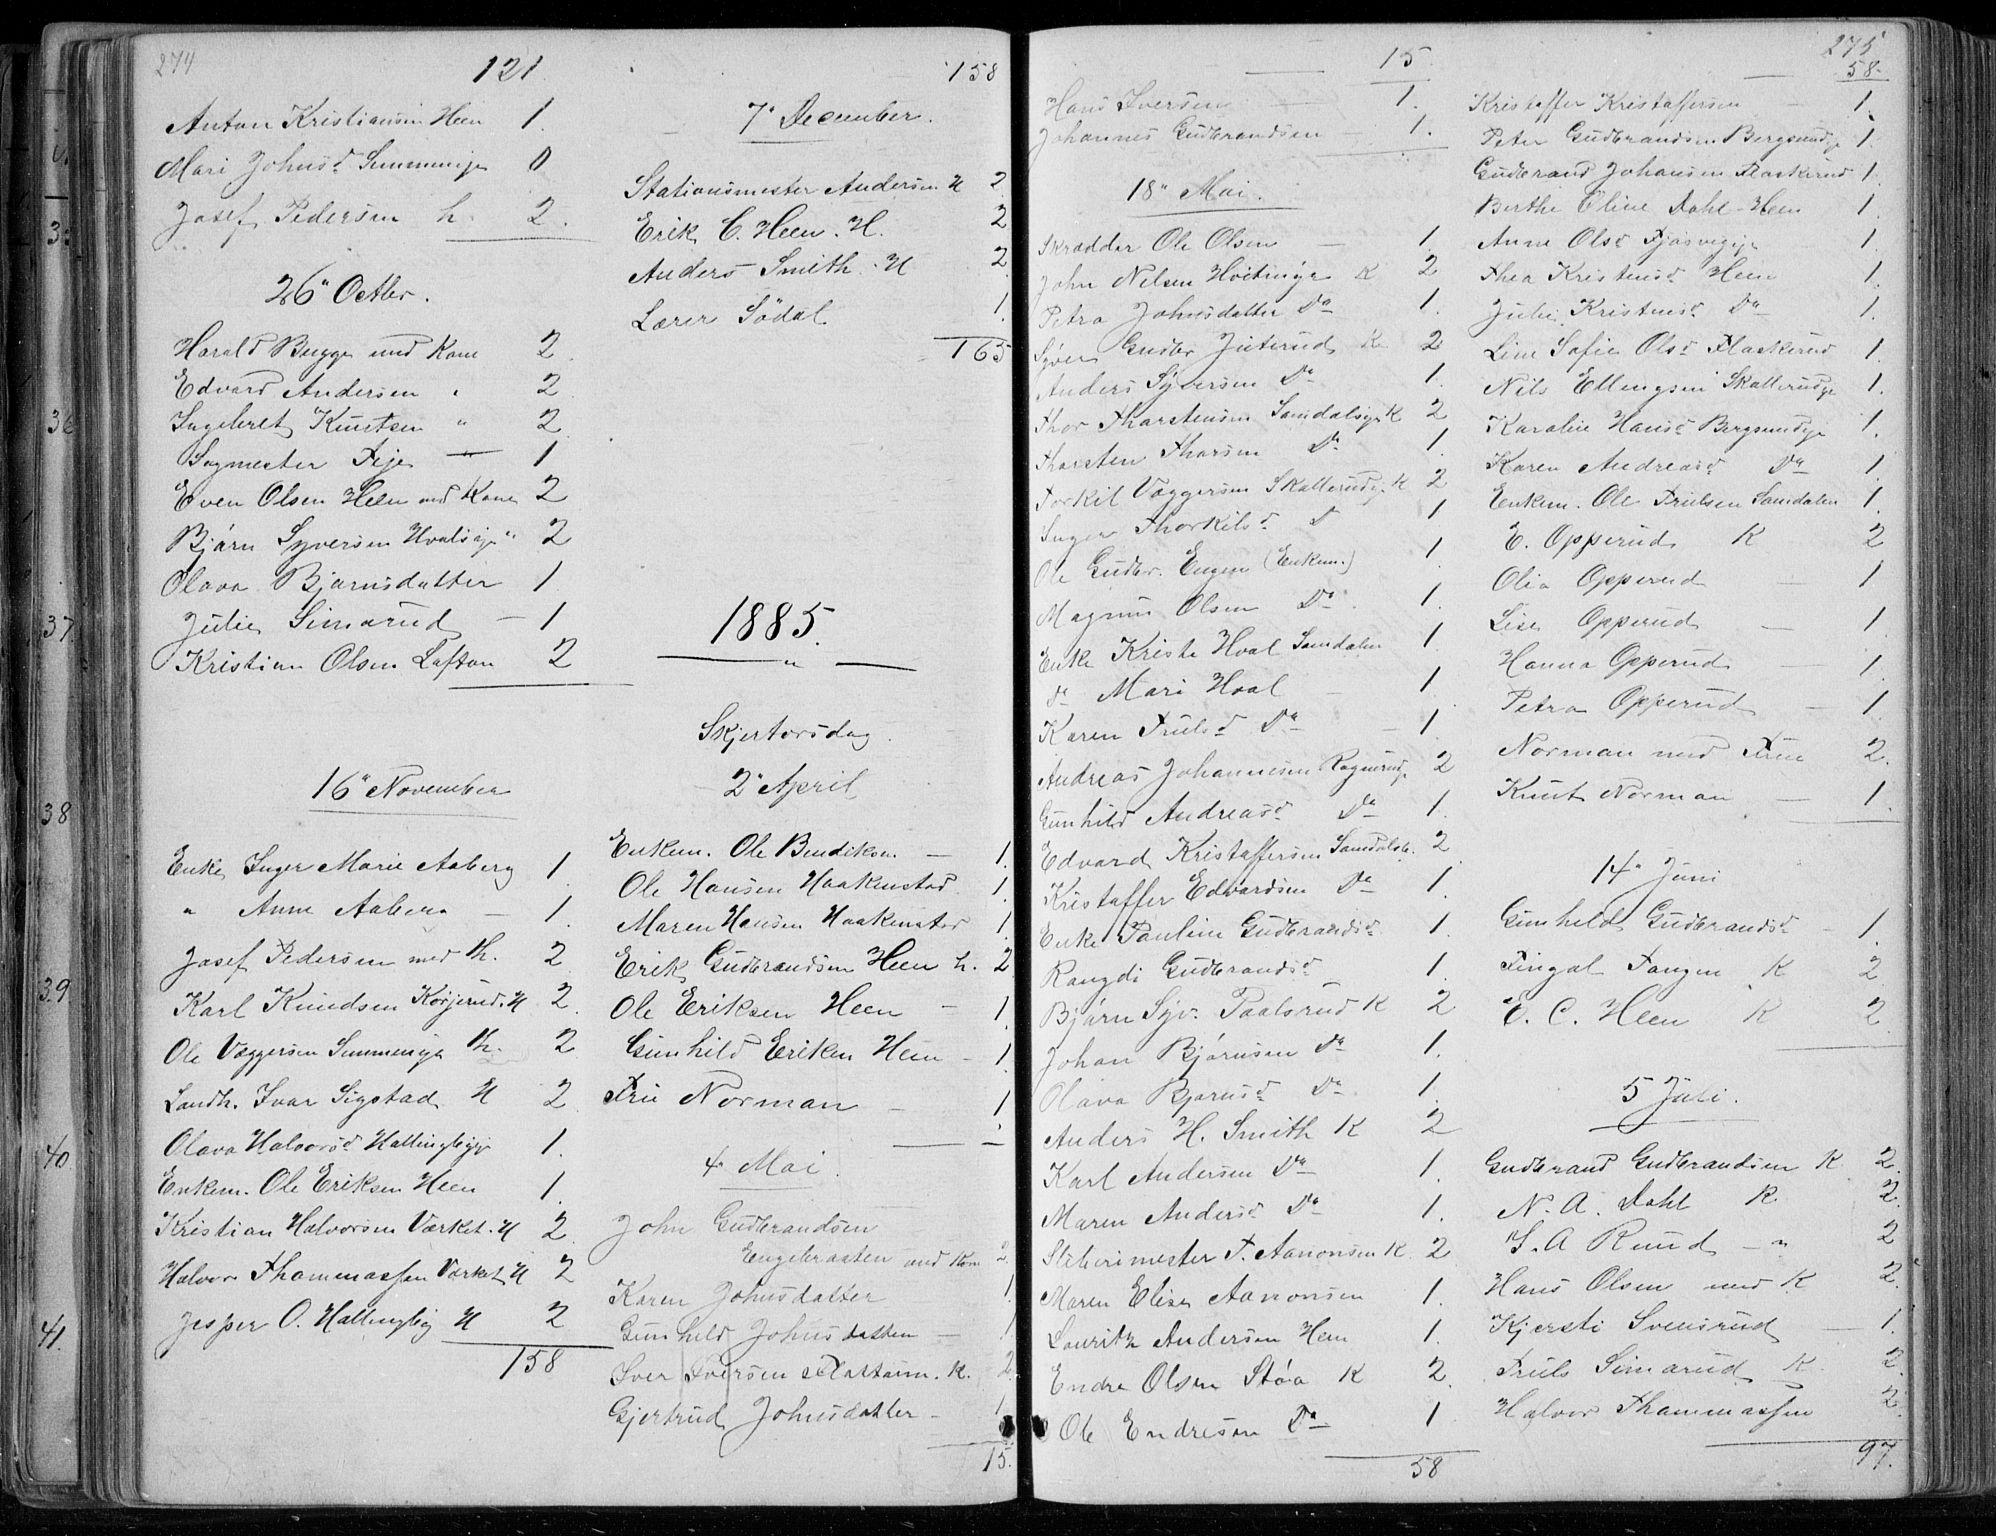 274
121
Anton Kristiansen Heen 1.
Mari Johnsd. Semmeneje 0
Josef Pedersen h. 2.
26" Octbr.
Harald Bugge med Kone 2
Edvard Andersen " 2
Ingebret Knutsen " 2
Sagmester Feje — 1
Even Olsen Heen med Kone 2
Bjørn Syversen Hvalseje " 2
Olava Bjørnsdatter 1
Julie Simarud — 1
Kristian Olsen Lofton 2
16" November
Enke Inger Marie Aaberg 1
" Anne Aaberg — 1.
Josef Pedersen med K. 2
Karl Knudsen Korjerud. H 2
Ole Væggersen Semmeneje K. 2
Landh. Ivar Sigstad H 2
Olava Halvorsd. Hallingbyeje 1.
Enkem. Ole Eriksen Heen 1.
Kristian Halvorsen Værket. H 2
Halvor Thommassen Værket H 2
Jesper O. Hallingby H 2
158
158
7" December.
Stationsmester Andersen H 2
Erik C. Heen. H. 2
Anders Smith. H 2
Lærer Sødal 1
165
1885.
Skjertorsdag.
2" April
Enkem. Ole Bendiksen — 1.
Ole Hansen Haakenstad 1.
Maren Hansen Haakenstad 1
Erik Gudbrandsen Heen h. 2
Ole Eriksen Heen — 1
Gunhild Eriksen Heen — 1
Fru Norman — 1
4" Mai.
John Gudbrandsen
Engebraaten med Kone 2
Karen Johnsdatter 1
Gunhild Johnsdatter — 1
Iver Iversen . K. 2
Gjertrud Johnsdatter — 1
15.
15.
Hans Iversen — 1.
Johannes Gudbrandsen — 1.
18" Mai.
Skrædder Ole Olsen — 1.
John Nilsen Hvitingeje K 2
Petra Johnsdatter Do 1.
Syver Gudbr. Juterud K 2
Anders Syversen Do 1.
Thor Tharstensen Samdalseje K 2
Tharsten Tharsen Do 1.
Torkil Væggersen Skallerudeje K 2
Inger Thorkilsd. D 1
Ole Gudbr. Engen (Enkem.) 1
Magnus Olsen Do. 1.
Enke Kristi Hval Samdalen 1.
do Mari Hval — 1.
Karen Trulsd. Do — 1.
Andreas Johannesen Ragnerudeje 2
Gunhild Andreasd. Do 1.
Edvard Kristaffersen Samdalsb. 2
Kristaffer Edvardsen Do 1.
Enke Pauline Gudbrandsd. 1.
Rangdi Gudbrandsd. 1.
Bjørn Syv. Paalsrud K 2
Johan Bjørnsen Do 1.
Olava Bjørnsd. Do 1.
Anders H. Smith K 2
Karl Andersen Do 1.
Maren Andersd. Do 1.
Sliberimester T. Aanonsen K. 2
Maren Elise Aanonsen 1.
Lauritz Andersen Heen 1.
Endre Olsen Støa K 2.
Ole Endresen Do 1
58
275
58.
Kristaffer Kristaffersen — 1.
Peter Gudbrandsen Bergsundeje 1.
Gudbrand Johansen Flaskerud 1.
Berthe Eline Dahl Heen 1.
Anne Olsd. 1.
Thea Kristensd. Heen 1.
Julie Kristensd. Do 1.
Line Sofie Olsd. Flaskerud 1.
Nils Ellengsen Skallerudeje 1.
Karoline Hansd. Bergsundeje 1.
Karen Andreasd. Do 1.
Enkem. Ole Trulsen Samdalen 1.
E. Opperud K 2
Olia Opperud — 1
Lise Opperud — 1
Hanna Opperud 1.
Petra Opperud — 1.
Norman med Frue 2.
Knut Norman — 1.
14" Juni
Gunhild Gudbrandsd. — 1.
Fingal Tangen K 2
E. C. Heen K 2
5 Juli.
Gudbrand Gudbrandsen K 2.
N. A. Dahl K. 2.
S. A Ruud — " 2
Hans Olsen med K 2.
Kjersti Svensrud — 1.
Truls Simarud K. 2.
Halvor Thommassen 2.
97.
36
37.
38
39.
40
41.